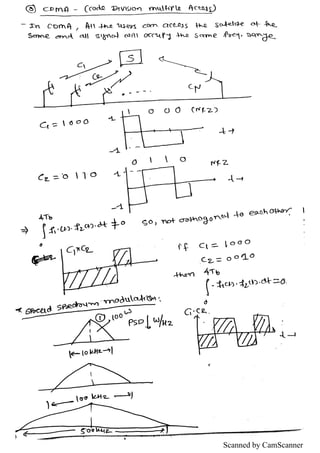 ③ CDMA - (code Division multiple Access)
- In CDMA, All the users can access the satelite at the
Same and all signal will occupy the same freq. range
S
C1
C2
CN
C1 = 1000
1
1 0 0 0 (NRZ)
t→
-1
C2 = 0110
0 1 1 0
NRZ
1
t→
-1
⇒ ∫ f1(t).f2(t).dt ≠ 0 so, not orthogonal to each other.
4Tb
0
C1×C2
if C1 = 1000
C2 = 0010
then 4Tb
∫ f1(t).f2(t).dt = 0
0
* spread spectrum modulation:
① 100W
PSD↓ W/HZ
C1.C2
t→
|← 10 kHz →|
|← 100 kHz →|
500kHz
Scanned by CamScanner